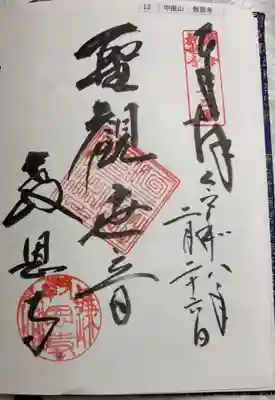 12 中座山 教恩寺
奉拝
令和八年
二月二十六日
聖觀世音
教恩寺